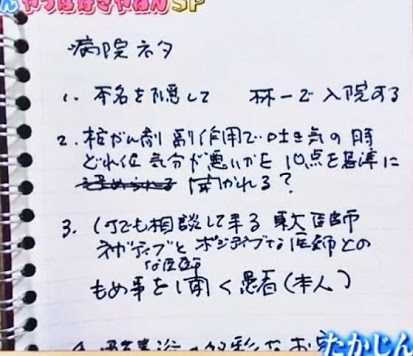 やっぱ好きやねんSP
病院ネタ
1. 本名を隠して 林一で入院する
2. 抗がん剤 副作用で吐き気の時
どれ位気分が悪いかを 10点を基準に
聞かれる?
3. 何でも相談して来る 東大医師
ネガティブと ポジティブな医師との
な医師
もめ事を聞く患者(本人)
4.
たかじん